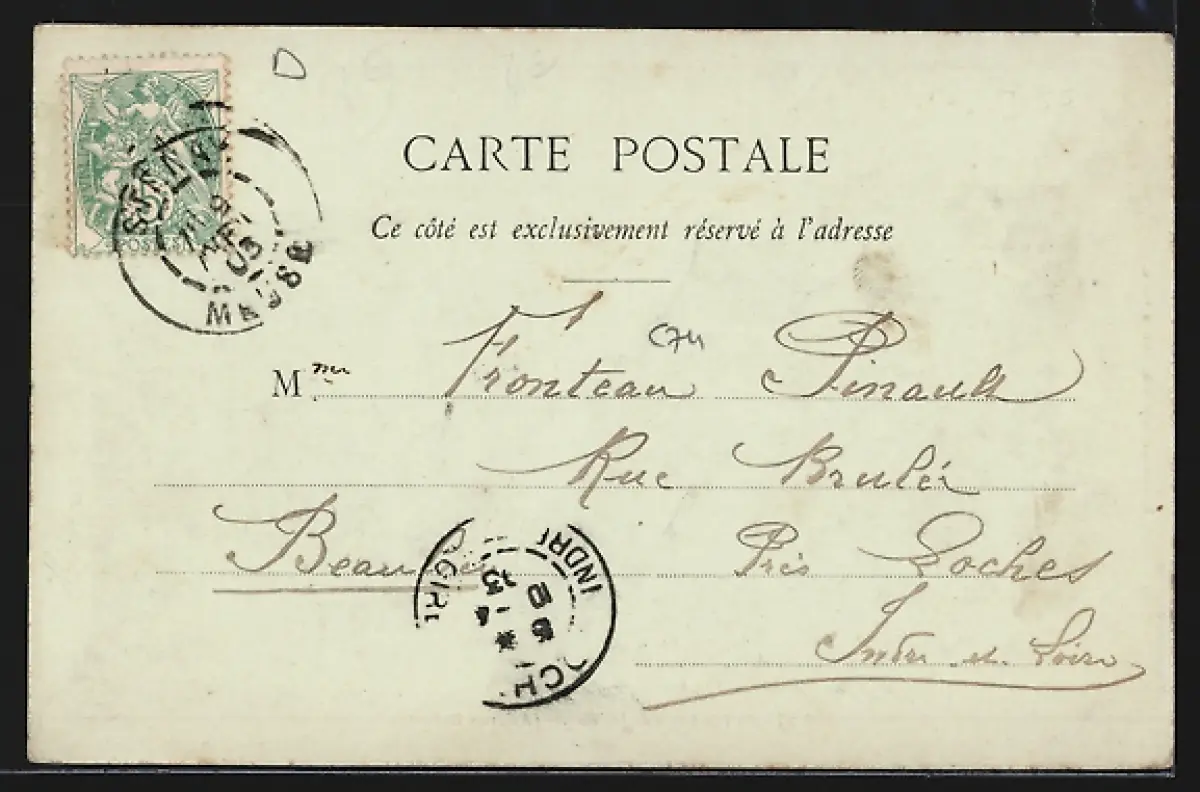 D
CARTE POSTALE
Ce côté est exclusivement réservé à l'adresse
974
Mme Fronteau Pinault
Rue Brulée
Beaulieu Près Loches
Indre et Loire
POSTES
MEUSE
9
03
INDRE
LOIRE
13